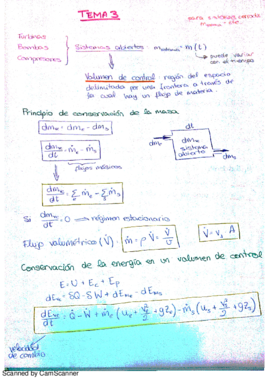 TEMA 3
para sistemas cerrado
Turbinas
Bombas
Compresores
Sistemas abiertos
= m(t)
puede variar
con el tiempo
Volumen de control: región del espacio
delimitada por una frontera a través de
la cual hay un flujo de materia.
Principio de conservación de la masa
dm_vc = dm_e - dm_s
dm_vc/dt = ṁ_e - ṁ_s
flujos másicos
dE
dm_e
dm_vc
sistema
abierto
dm_s
dm_vc/dt = Σ ṁ_e - Σ ṁ_s
Si dm_vc/dt = 0 → régimen estacionario
Flujo volumétrico (V̇) → ṁ = ρ · V̇ = V̇/υ
V̇ = v_s A
Conservación de la energía en un volumen de control
E = U + E_c + E_p
dE_vc = δQ - δW + dE_me - dE_ms
dE_vc/dt = Q̇ - Ẇ + ṁ_e (u_e + v_e²/2 + gz_e) - ṁ_s (u_s + v_s²/2 + gz_s)
velocidad
de cambio
Scanned by CamScanner